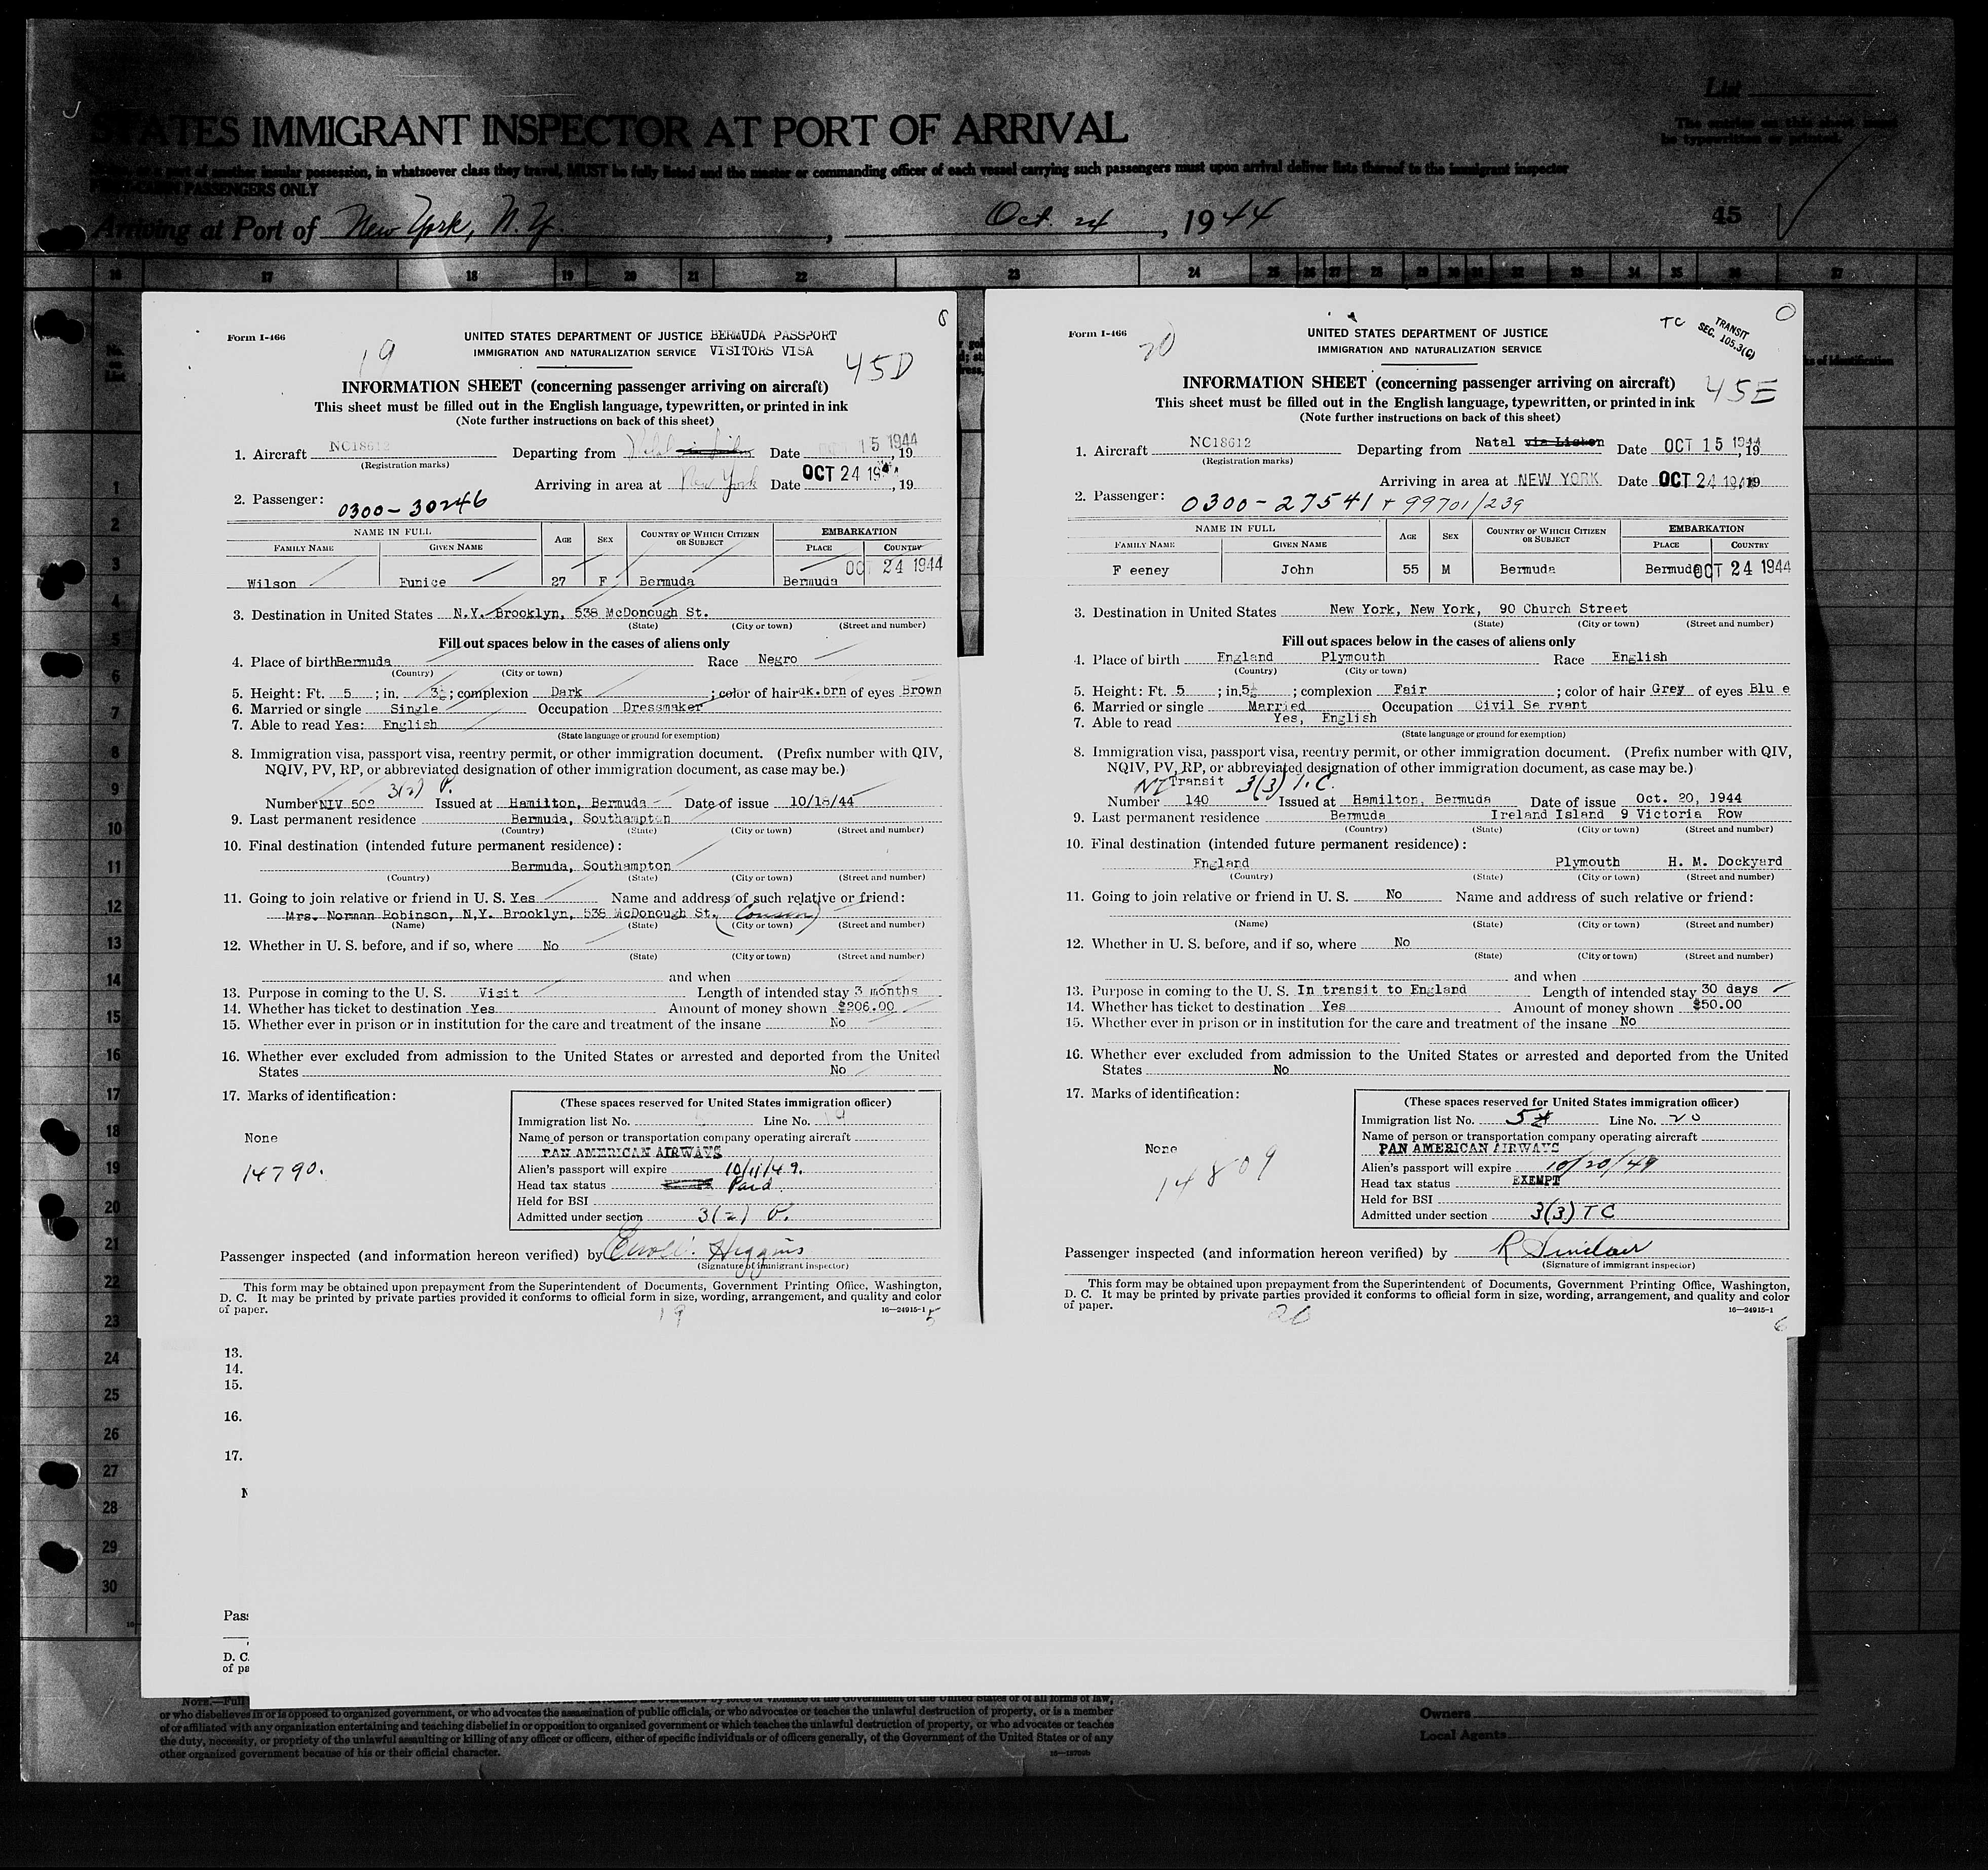 STATES IMMIGRANT INSPECTOR AT PORT OF ARRIVAL
part of another insular possession, in whatever class they travel, MUST be fully listed and the master or commanding officer of each vessel carrying such passengers must upon arrival deliver lists thereof to the immigrant inspector
PASSENGERS ONLY
List
The entries on this sheet must
be typewritten or printed.
Arriving at Port of New York, N.Y. , Oct. 24 , 1944
45
16 17 18 19 20 21 22 23 24 25 26 27 28 29 30 31 32 33 34 35 36 37
Form I-466
19
UNITED STATES DEPARTMENT OF JUSTICE BERMUDA PASSPORT
IMMIGRATION AND NATURALIZATION SERVICE VISITORS VISA
45D
INFORMATION SHEET (concerning passenger arriving on aircraft)
This sheet must be filled out in the English language, typewritten, or printed in ink
(Note further instructions on back of this sheet)
1. Aircraft NC18612 Departing from Date 15 1944, 19
(Registration marks)
Arriving in area at New York Date OCT 24 19, 19
2. Passenger: 0300-30246
NAME IN FULL AGE SEX COUNTRY OF WHICH CITIZEN OR SUBJECT EMBARKATION
FAMILY NAME GIVEN NAME PLACE COUNTRY
OCT 24 1944
Wilson Eunice 27 F Bermuda Bermuda
3. Destination in United States N.Y. Brooklyn, 538 McDonough St.
(State) (City or town) (Street and number)
Fill out spaces below in the cases of aliens only
4. Place of birth Bermuda Race Negro
(Country) (City or town)
5. Height: Ft. 5 ; in. 3½ ; complexion Dark ; color of hair uk.brn of eyes Brown
6. Married or single Single Occupation Dressmaker
7. Able to read Yes: English
(State language or ground for exemption)
8. Immigration visa, passport visa, reentry permit, or other immigration document. (Prefix number with QIV,
NQIV, PV, RP, or abbreviated designation of other immigration document, as case may be.)
3(2) P.
Number NIV 502 Issued at Hamilton, Bermuda Date of issue 10/18/44
9. Last permanent residence Bermuda, Southampton
(Country) (State) (City or town) (Street and number)
10. Final destination (intended future permanent residence):
Bermuda, Southampton
(Country) (State) (City or town) (Street and number)
11. Going to join relative or friend in U. S. Yes Name and address of such relative or friend:
Mrs. Norman Robinson, N.Y. Brooklyn, 538 McDonough St. (Cousin)
(Name) (State) (City or town) (Street and number)
12. Whether in U. S. before, and if so, where No
(State) (City or town) (Street and number)
and when
13. Purpose in coming to the U. S. Visit Length of intended stay 3 months
14. Whether has ticket to destination Yes Amount of money shown $206.00
15. Whether ever in prison or in institution for the care and treatment of the insane No
16. Whether ever excluded from admission to the United States or arrested and deported from the United
States No
17. Marks of identification:
None
14790.
(These spaces reserved for United States immigration officer)
Immigration list No. Line No. 19
Name of person or transportation company operating aircraft
PAN AMERICAN AIRWAYS
Alien's passport will expire 10/11/49.
Head tax status Paid
Held for BSI
Admitted under section 3(2) P.
Passenger inspected (and information hereon verified) by Higgins
(Signature of immigrant inspector)
This form may be obtained upon prepayment from the Superintendent of Documents, Government Printing Office, Washington,
D. C. It may be printed by private parties provided it conforms to official form in size, wording, arrangement, and quality and color
of paper.
16—24915-1
19
5
Form I-466
20
UNITED STATES DEPARTMENT OF JUSTICE
IMMIGRATION AND NATURALIZATION SERVICE
TC
TRANSIT
SEC. 105.3(C)
45E
INFORMATION SHEET (concerning passenger arriving on aircraft)
This sheet must be filled out in the English language, typewritten, or printed in ink
(Note further instructions on back of this sheet)
1. Aircraft NC18612 Departing from Natal via Lisbon Date OCT 15 1944, 19
(Registration marks)
Arriving in area at NEW YORK Date OCT 24 1944 19
2. Passenger: 0300-27541 + 99701/239
NAME IN FULL AGE SEX COUNTRY OF WHICH CITIZEN OR SUBJECT EMBARKATION
FAMILY NAME GIVEN NAME PLACE COUNTRY
F eeney John 55 M Bermuda Bermuda OCT 24 1944
3. Destination in United States New York, New York, 90 Church Street
(State) (City or town) (Street and number)
Fill out spaces below in the cases of aliens only
4. Place of birth England Plymouth Race English
(Country) (City or town)
5. Height: Ft. 5 ; in. 5½ ; complexion Fair ; color of hair Grey of eyes Blu e
6. Married or single Married Occupation Civil Se rvant
7. Able to read Yes, English
(State language or ground for exemption)
8. Immigration visa, passport visa, reentry permit, or other immigration document. (Prefix number with QIV,
NQIV, PV, RP, or abbreviated designation of other immigration document, as case may be.)
Transit 3(3) T.C.
Number 140 Issued at Hamilton, Bermuda Date of issue Oct. 20, 1944
9. Last permanent residence Bermuda Ireland Island 9 Victoria Row
(Country) (State) (City or town) (Street and number)
10. Final destination (intended future permanent residence):
England Plymouth H. M. Dockyard
(Country) (State) (City or town) (Street and number)
11. Going to join relative or friend in U. S. No Name and address of such relative or friend:
(Name) (State) (City or town) (Street and number)
12. Whether in U. S. before, and if so, where No
(State) (City or town) (Street and number)
and when
13. Purpose in coming to the U. S. In transit to England Length of intended stay 30 days
14. Whether has ticket to destination Yes Amount of money shown $50.00
15. Whether ever in prison or in institution for the care and treatment of the insane No
16. Whether ever excluded from admission to the United States or arrested and deported from the United
States No
17. Marks of identification:
None
14809
(These spaces reserved for United States immigration officer)
Immigration list No. 5 Line No. 20
Name of person or transportation company operating aircraft
PAN AMERICAN AIRWAYS
Alien's passport will expire 10/20/49
Head tax status EXEMPT
Held for BSI
Admitted under section 3(3) TC
Passenger inspected (and information hereon verified) by R Sinclair
(Signature of immigrant inspector)
This form may be obtained upon prepayment from the Superintendent of Documents, Government Printing Office, Washington,
D. C. It may be printed by private parties provided it conforms to official form in size, wording, arrangement, and quality and color
of paper.
16—24915-1
20
6
1
2
3
4
5
6
7
8
9
10
11
12
13
14
15
16
17
18
19
20
21
22
23
24
25
26
27
28
29
30
13.
14.
15.
16.
17.
Pass
D. C.
of pa
NOTE.—Full
or who disbelieves in or is opposed to organized government, or who advocates the assassination of public officials, or who advocates or teaches the unlawful destruction of property, or is a member
of or affiliated with any organization entertaining and teaching disbelief in or opposition to organized government or which teaches the unlawful destruction of property, or who advocates or teaches
the duty, necessity, or propriety of the unlawful assaulting or killing of any officer or officers, either of specific individuals or of officers generally, of the Government of the United States or of any
other organized government because of his or their official character.
Owners
Local Agents